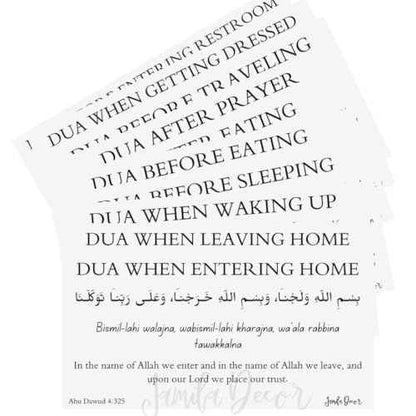 DUA BEFORE ENTERING RESTROOM
DUA WHEN GETTING DRESSED
DUA BEFORE TRAVELING
DUA AFTER PRAYER
DUA AFTER EATING
DUA BEFORE EATING
DUA BEFORE SLEEPING
DUA WHEN WAKING UP
DUA WHEN LEAVING HOME
DUA WHEN ENTERING HOME
بِسْمِ اللَّهِ وَلَجْنَا، وَبِسْمِ اللَّهِ خَرَجْنَا، وَعَلَى رَبِّنَا تَوَكَّلْنَا
Bismil-lahi walajna, wabismil-lahi kharajna, wa'ala rabbina
tawakkalna
In the name of Allah we enter and in the name of Allah we leave, and
upon our Lord we place our trust.
Abu Dawud 4:325
Jamila Decor
Jamila Decor